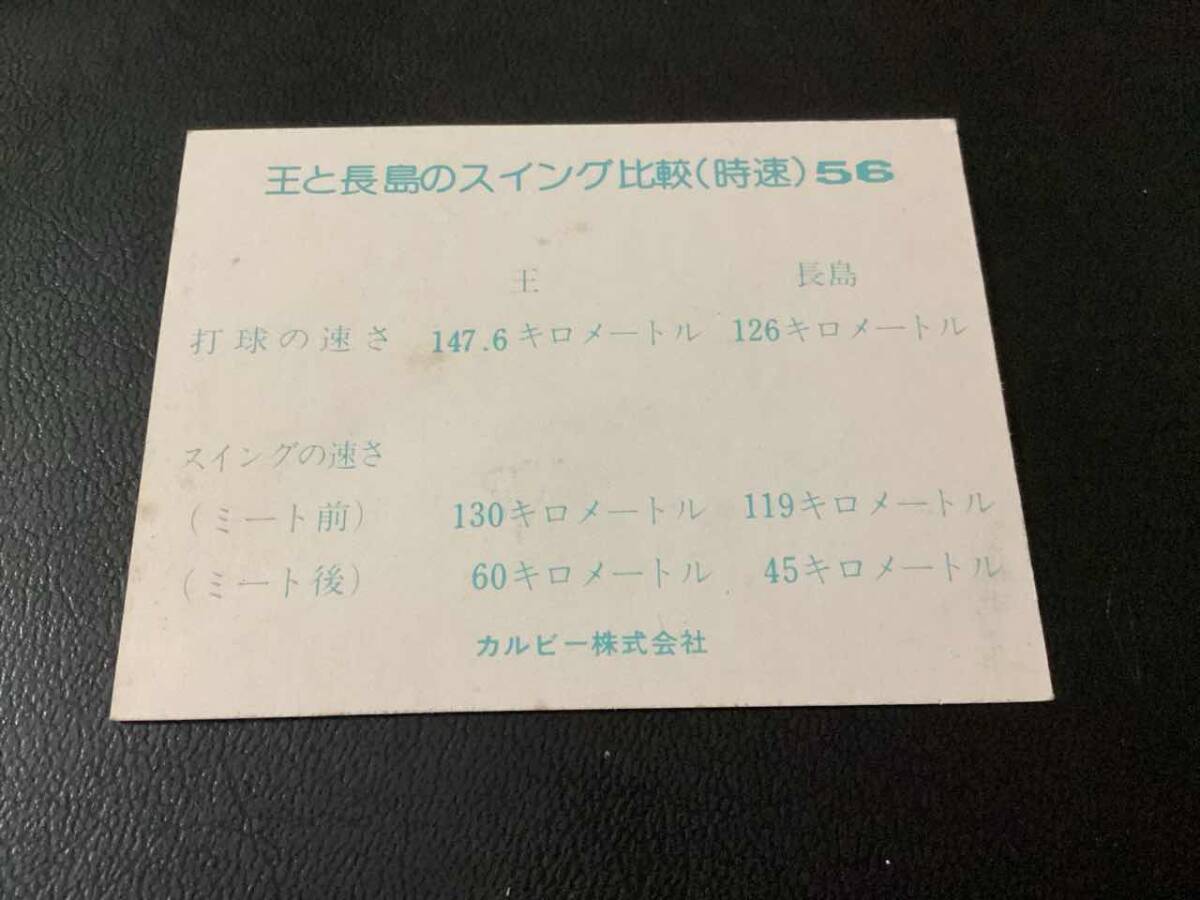 王と長島のスイング比較(時速)56
王 長島
打球の速さ 147.6キロメートル 126キロメートル
スイングの速さ
(ミート前) 130キロメートル 119キロメートル
(ミート後) 60キロメートル 45キロメートル
カルビー株式会社